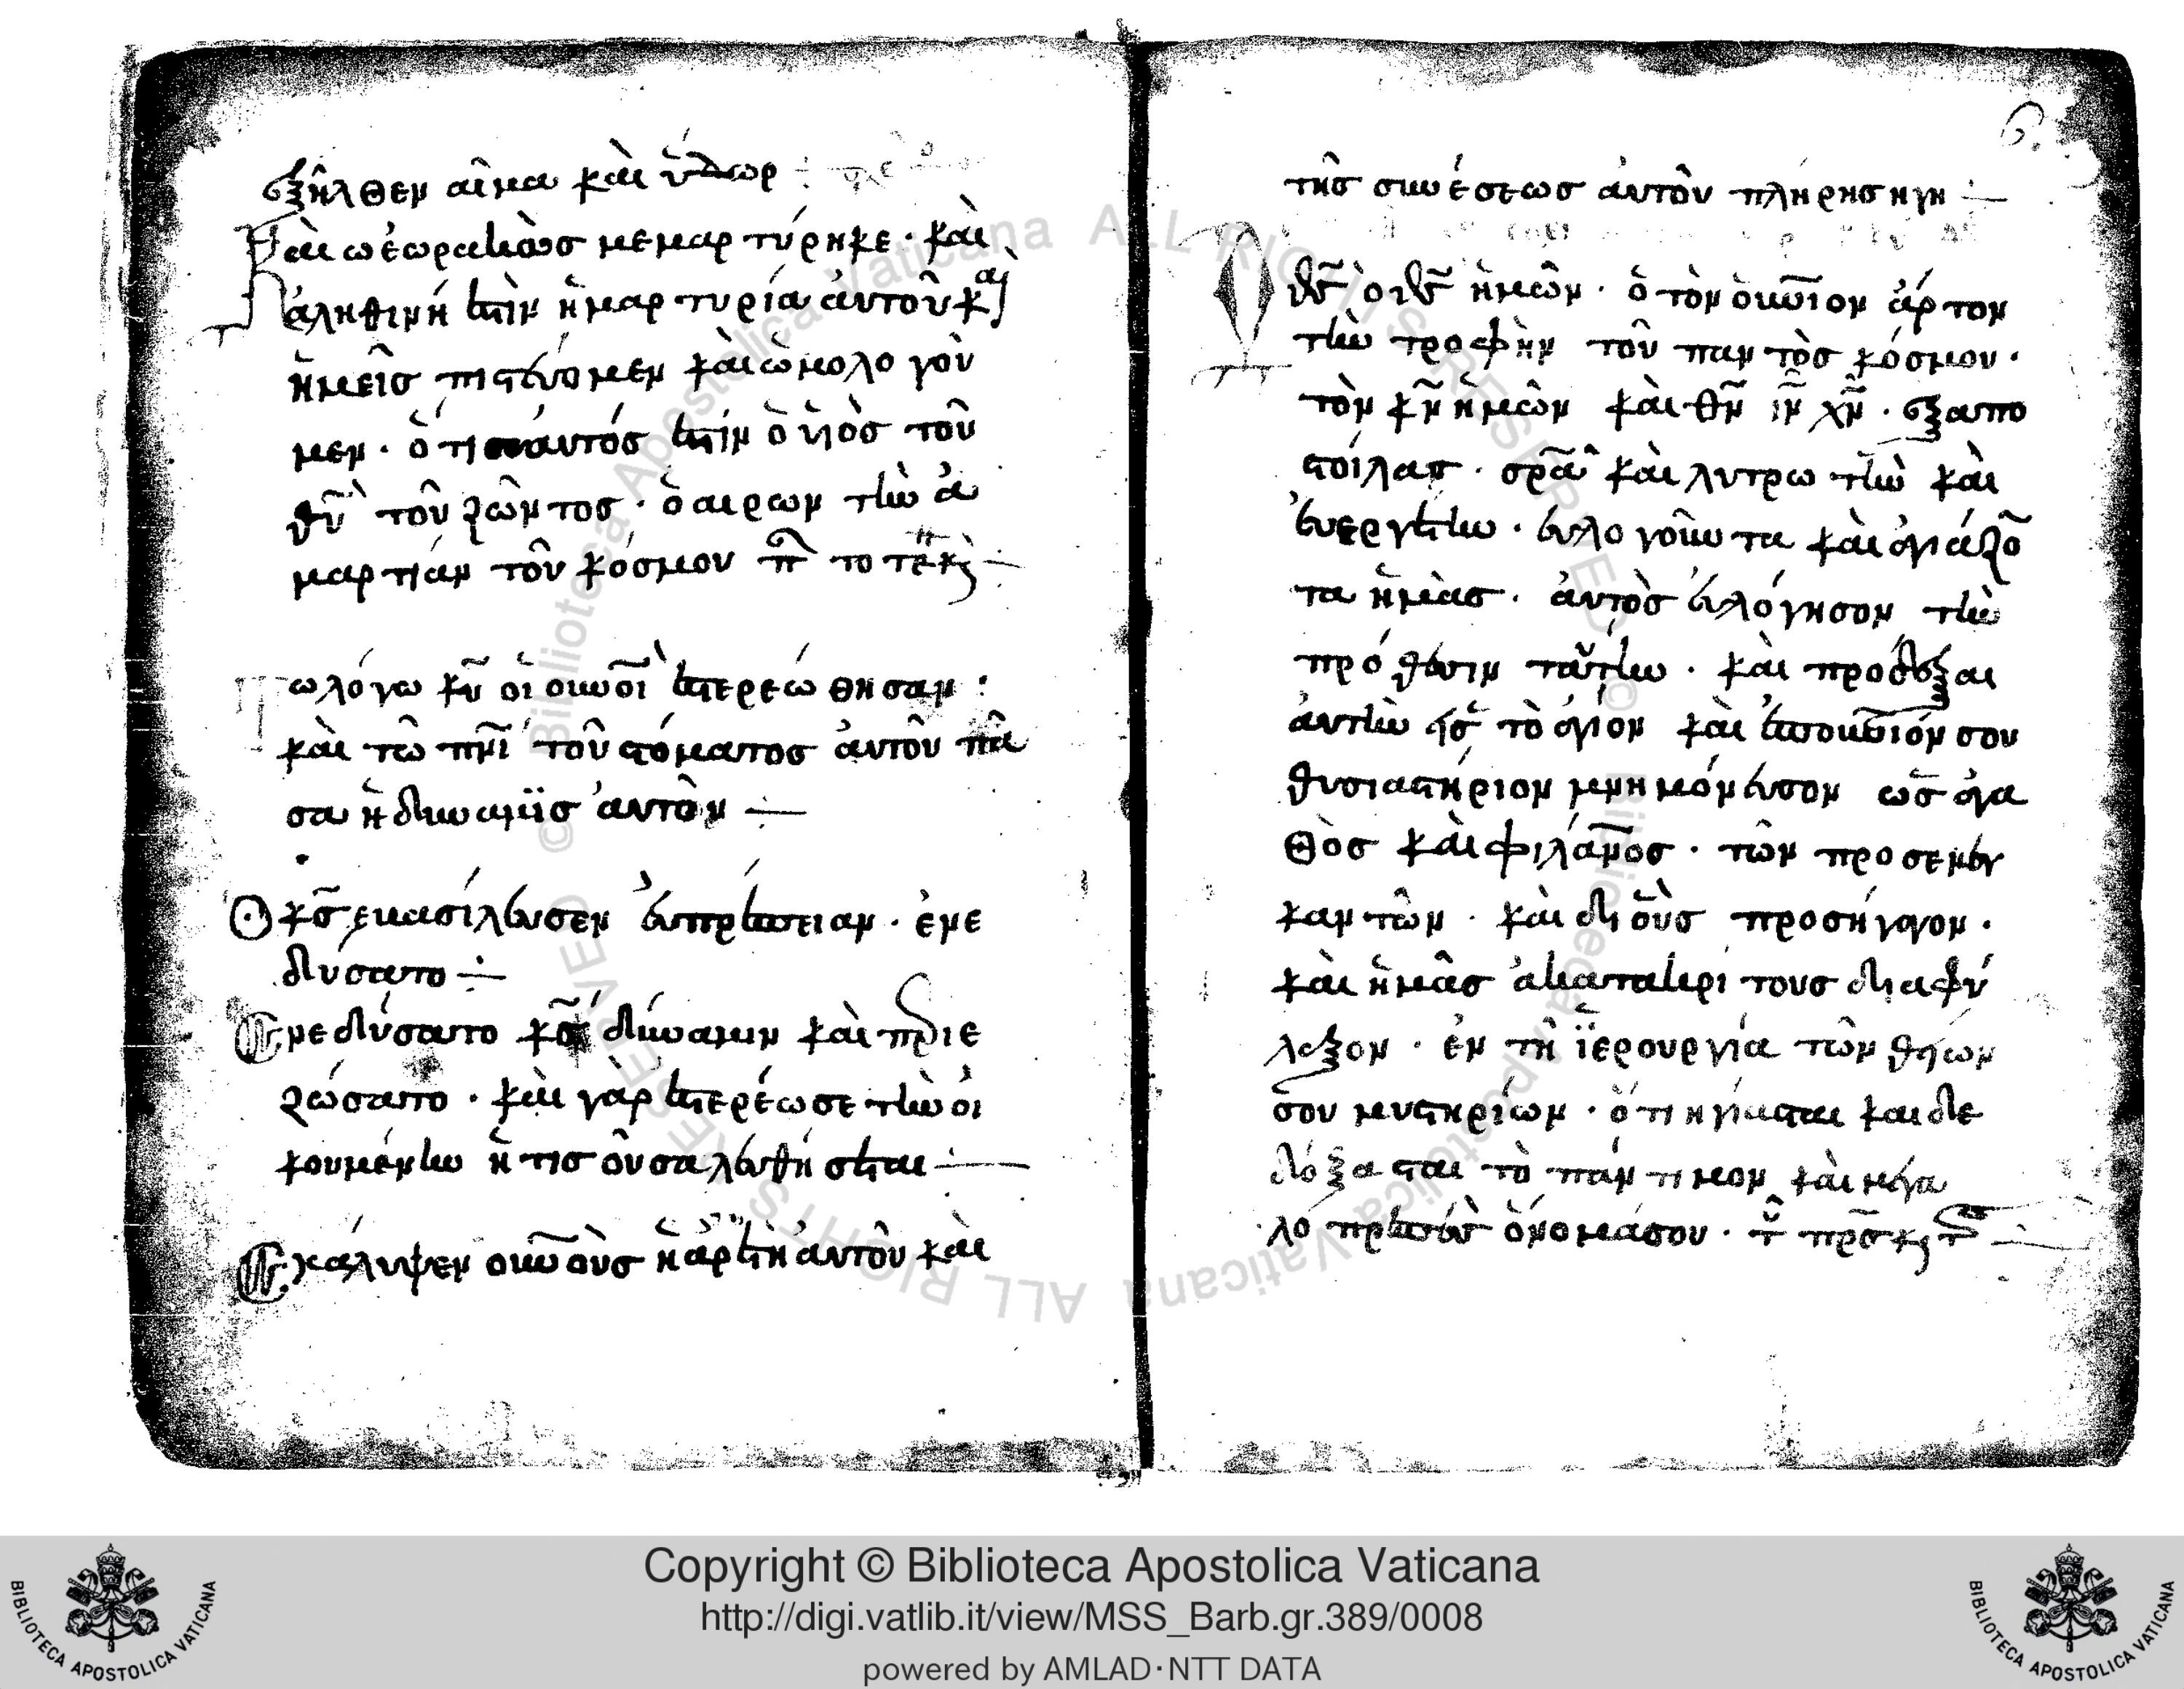 ἐξῆλθεν αἷμα καὶ ὕδωρ
Καὶ ὡ ἑωρακὼς μεμαρτύρηκε· καὶ
ἀληθινὴ ἐστὶν ἡ μαρτυρία ἀυτοῦ κ(αὶ)
ἡμεῖς πιστεύομεν καὶ ὡμολογοῦ
μεν· ὅτι ἀυτός ἐστίν ὁ ὑιὸς τοῦ
θῦ τοῦ ζῶντος· ὁ αιρων τὴν ἁ
μαρτίαν τοῦ κόσμου
τω λόγω κῦ οἱ οὐνοὶ ἐστερεώθησαν :
καὶ τῶ πνὶ τοῦ στόματος ἀυτοῦ πᾶ
σα ἡ δυναμϊς ἀυτῶν
Ο κς εβασίλευσεν ἐυπρέπειαν· ἐνε
δύσατο
Ενεδύσατο κς δύναμιν καὶ περιε
ζώσατο· καὶ γὰρ ἐστερέωσε τὴν οἰ
κουμένην ἥτις οὐ σαλευθήσεται
Εκάλυψεν οὐνοὺς ἡ ἀρετὴ ἀυτοῦ καὶ
τῆς συνέσεως ἀυτοῦ πλήρης ἡ γῆ
Ο θς ὁ θς ἡμῶν· ὁ τὸν οὐνιον ἄρτον
τὴν τροφὴν τοῦ παντὸς κόσμου·
τὸν κν ἡμῶν καὶ θν ιν χν· ἐξαπο
στείλας· σρα καὶ λυτρωτὴν καὶ
ἐυεργέτην· ἐυλογοῦντα καὶ ἁγιάζο
τα ἡμᾶς· ἀυτὸς ἐυλόγησον τὴν
πρόθεσιν ταύτην· καὶ πρόσδεξαι
ἀυτὴν εἰς τὸ ἅγιον καὶ ὑπερουνιόν σου
θυσιαστήριον μνημόνευσον ὡς ἀγα
θὸς καὶ φιλανος· τῶν προσενεγ
καντῶν· καὶ δι οὓς προσήγαγον·
καὶ ἡμᾶς ἀκατακρίτους διαφύ
λαξον· ἐν τῆ ἱερουργία τῶν θείων
σου μυστηρίων· ὅτι ηγίασται και δε
δόξασται τὸ πάντιμον καὶ μεγα
λοπρεπὲς ὄνομά σου· τ πρς κ τ
Copyright © Biblioteca Apostolica Vaticana
http://digi.vatlib.it/view/MSS_Barb.gr.389/0008
powered by AMLAD·NTT DATA
BIBLIOTECA APOSTOLICA VATICANA
BIBLIOTECA APOSTOLICA VATICANA